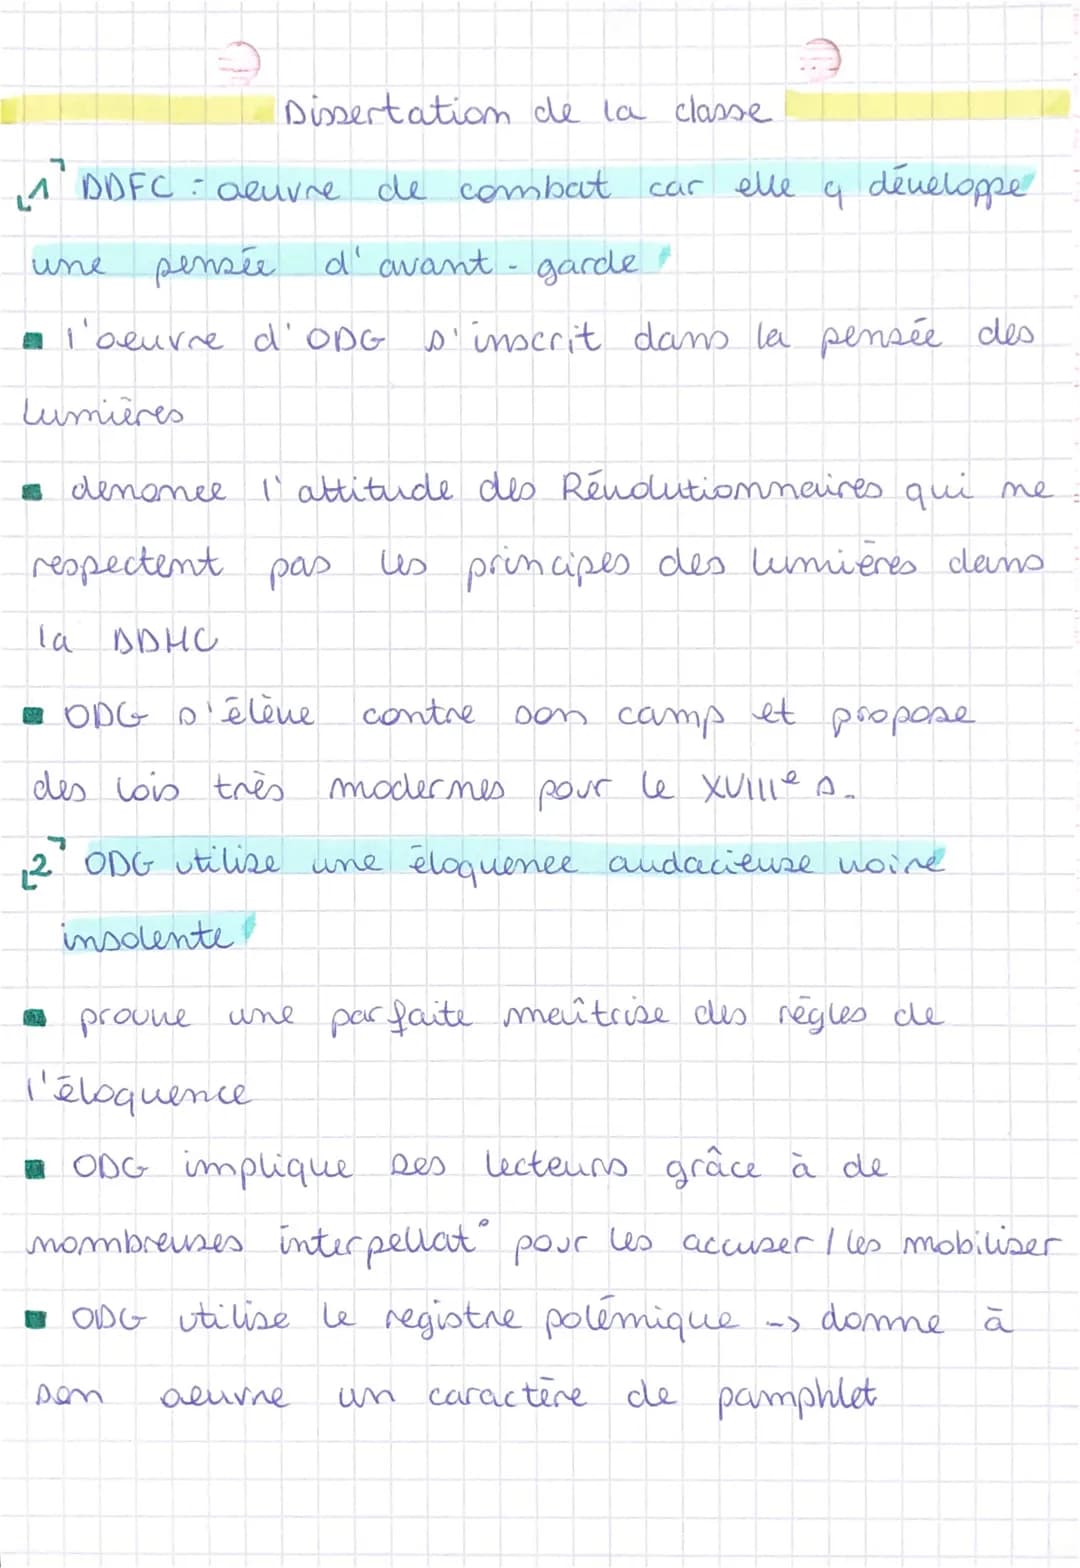 Dissertation de la classe
1 DDFC : oeuvre de combat car elle y développe
une pensée d'avant-garde
l'oeuvre d'ODG s'inscrit dans la pensée des
Lumières
denonce l'attitude des Révolutionnaires qui ne
respectent pas les principes des lumières dans
la DDHC
ODG s'élève contre son camp et propose
des lois très modernes pour le XVIIIe s.
2 ODG utilise une éloquence audacieuse voire
insolente
prouve une parfaite maîtrise des règles de
l'éloquence
ODG implique ses lecteurs grâce à de
nombreuses interpellat° pour les accuser / les mobiliser
ODG utilise le registre polémique -> donne à
son oeuvre un caractère de pamphlet